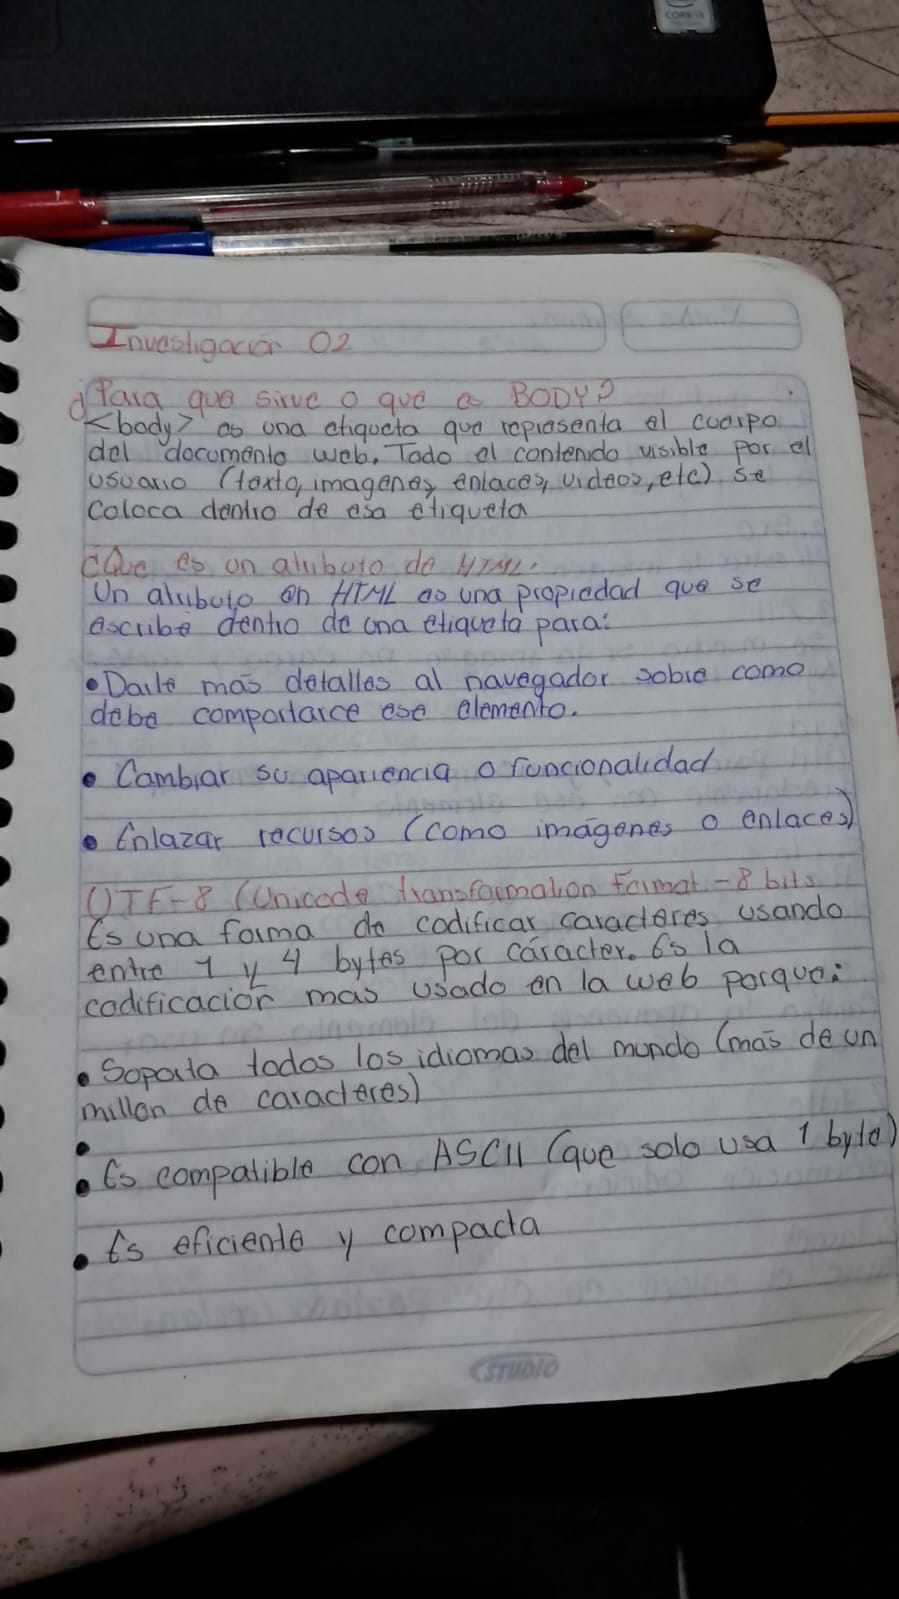 CORE i3
Investigación 02
¿Para que sirve o que es BODY?
<body> es una etiqueta que representa el cuerpo
del documento web. Todo el contenido visible por el
usuario (texto, imagenes, enlaces, videos, etc) se
coloca dentro de esa etiqueta
¿Que es un atributo de HTML.
Un atributo en HTML es una propiedad que se
escribe dentro de una etiqueta para:
• Darle más detalles al navegador sobre como
debe comportarce ese elemento.
• Cambiar su apariencia o funcionalidad
• Enlazar recursos (como imágenes o enlaces)
UTF-8 (Unicode transformation Format - 8 bits
Es una forma de codificar caracteres usando
entre 1 y 4 bytes por cáracter. Es la
codificación mas usado en la web porque:
• Soporta todos los idiomas del mundo (más de un
millon de caracteres)
•
• Es compatible con ASCII (que solo usa 1 byte)
• Es eficiente y compacta
STUDIO